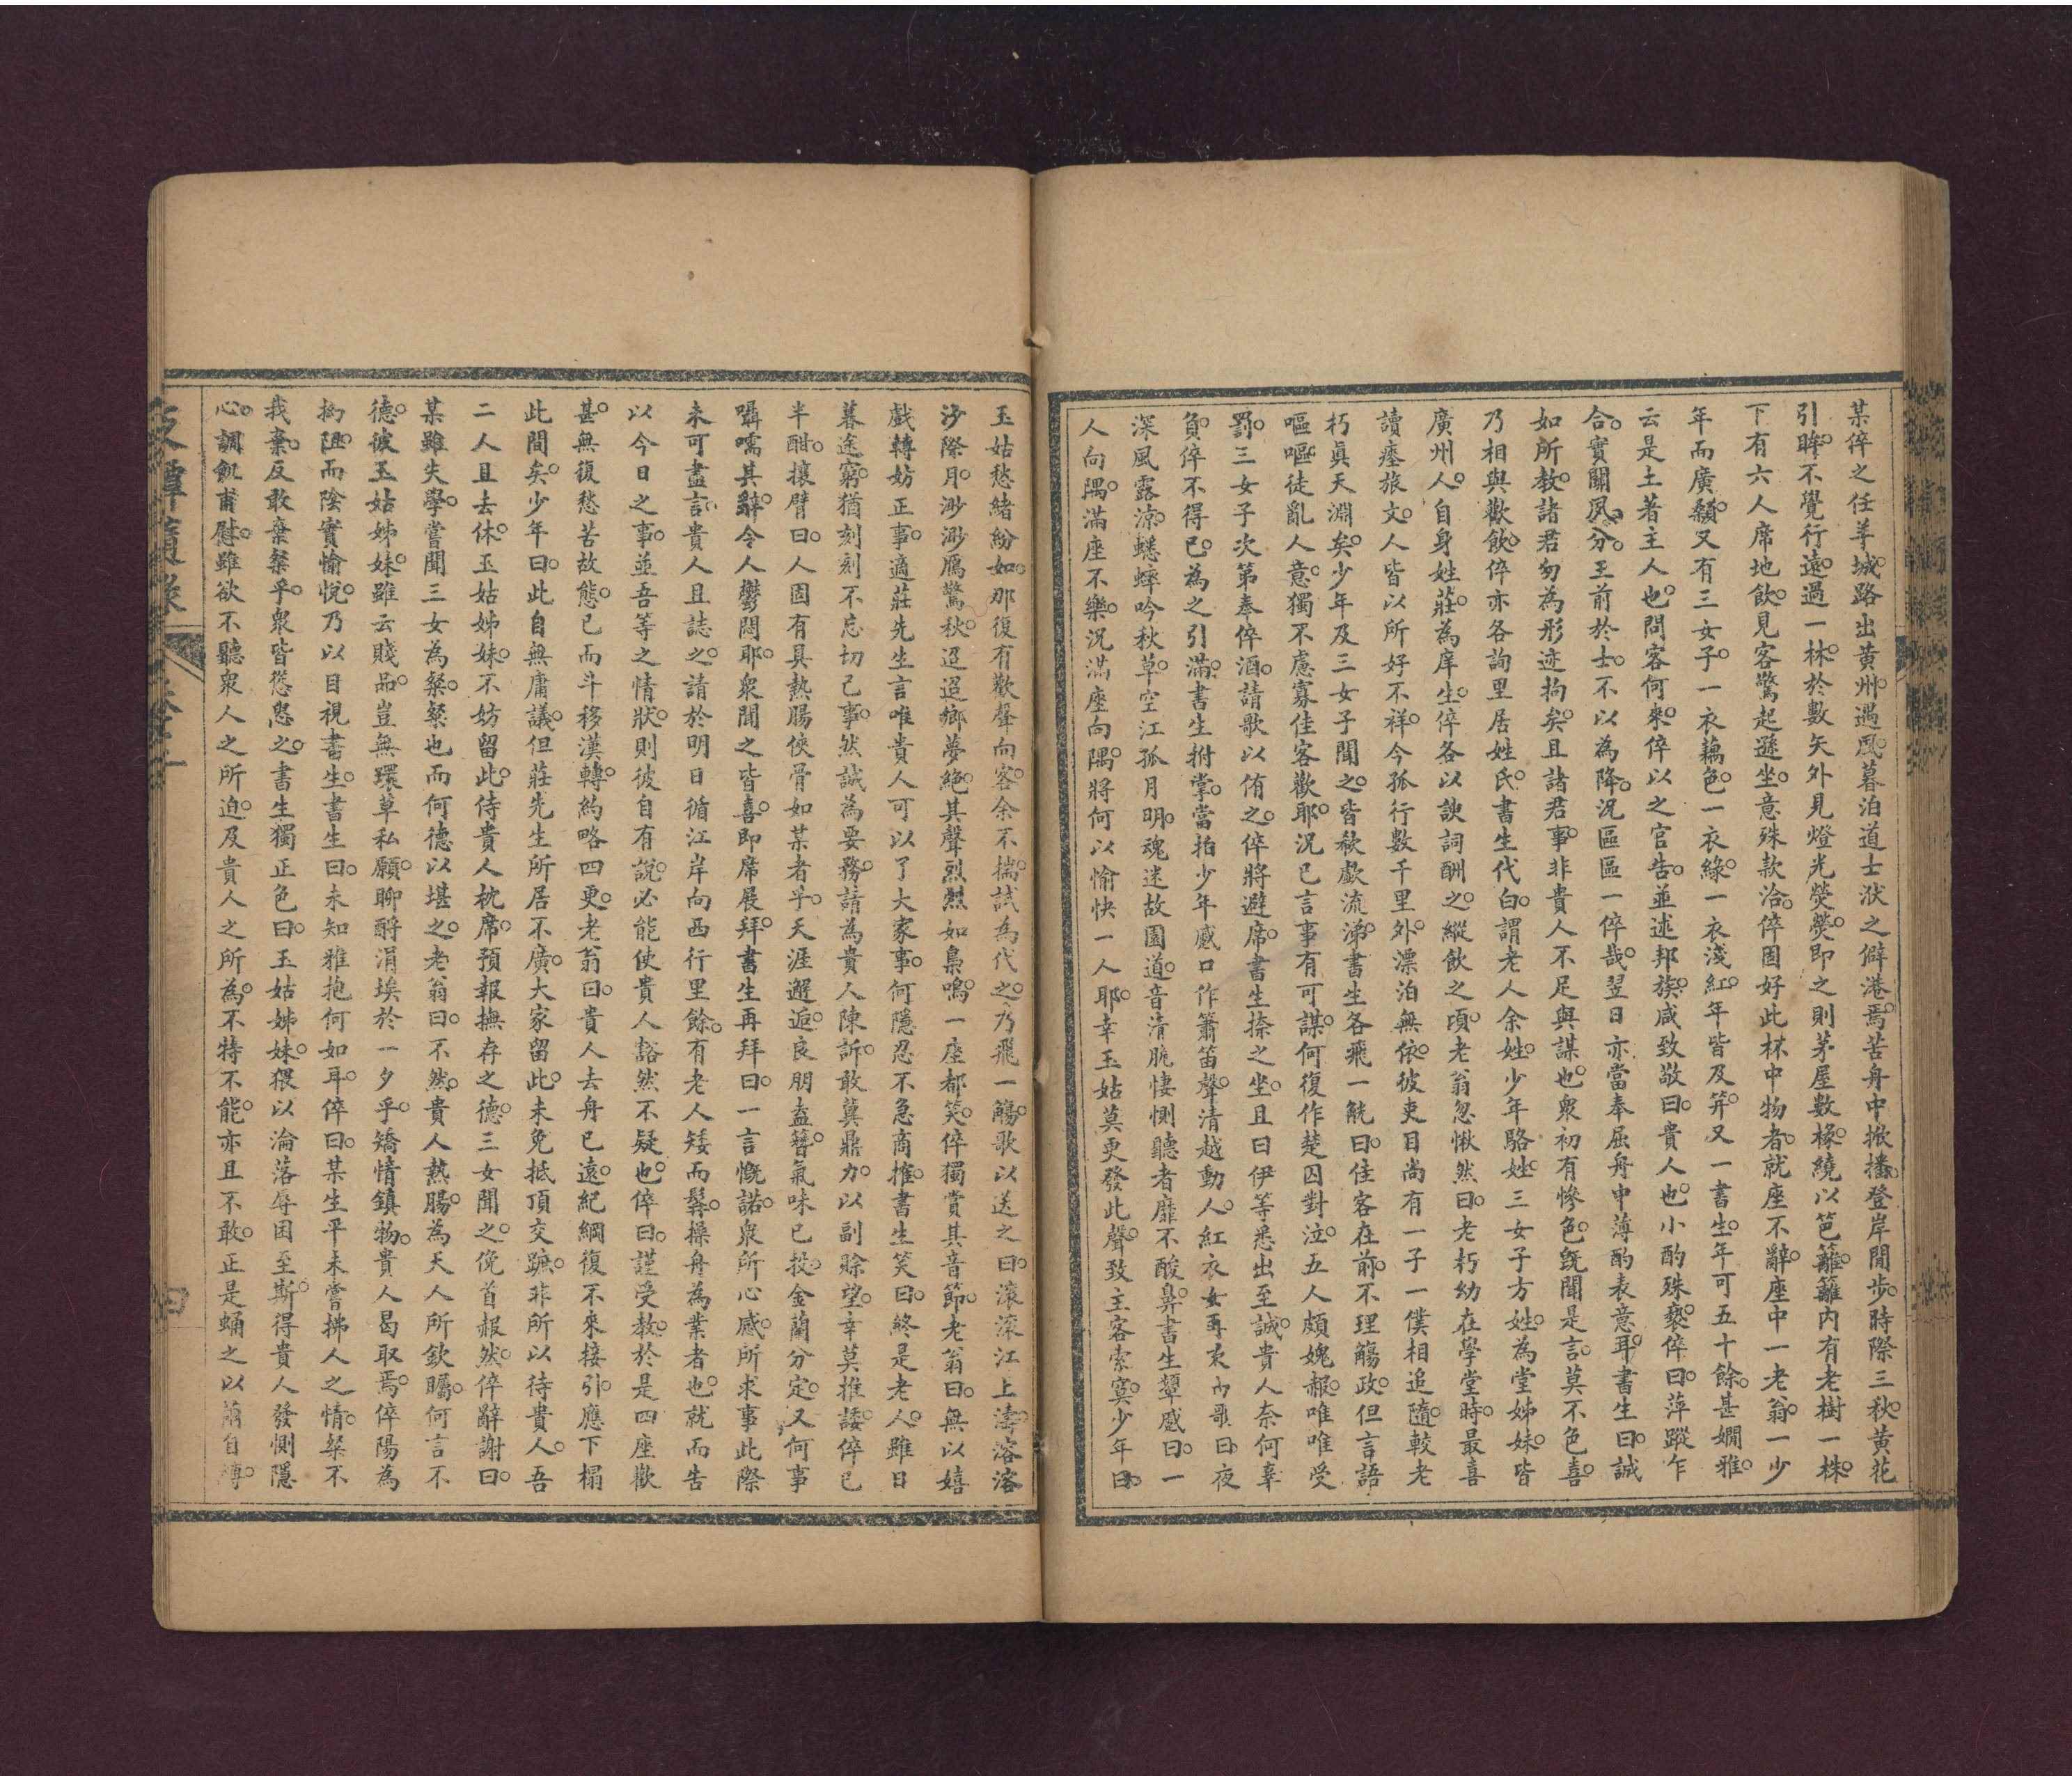 某倅之任羊城。路出黄州。遇風。暮泊道士洑之僻港焉。苦舟中掀播。登岸閒步。時際三秋。黄花
引眸。不覺行遠。過一林。於數矢外見燈光熒熒。即之則茅屋數椽。繞以笆籬。籬内有老樹一株。
下有六人席地飲。見客驚起遜坐。意殊款洽。倅固好此杯中物者。就座不辭。座中一老翁。一少
年而廣顙。又有三女子。一衣藕色。一衣綠。一衣淺紅。年皆及笄。又一書生。年可五十餘。甚嫻雅。
云是土著主人也。問客何來。倅以之官告。並述邦族。咸致敬曰。貴人也。小酌殊褻。倅曰。萍蹤乍
合。實關夙分。王前於士。不以為降。況區區一倅哉。翌日亦當奉屈舟中。薄酌表意耳。書生曰。誠
如所教。諸君勿為形迹拘矣。且諸君事。非貴人不足與謀也。衆初有慘色。既聞是言。莫不色喜。
乃相與歡飲。倅亦各詢里居姓氏。書生代白。謂老人余姓。少年駱姓。三女子方姓。為堂姊妹。皆
廣州人。自身姓莊。為庠生。倅各以諛詞酬之。縱飲之頃。老翁忽愀然曰。老朽幼在學堂時。最喜
讀瘞旅文。人皆以所好不祥。今孤行數千里外。漂泊無依。彼吏目尚有一子一僕相追隨。較老
朽眞天淵矣。少年及三女子聞之。皆欷歔流涕。書生各飛一觥曰。佳客在前。不理觴政。但言語
嘔嘔。徒亂人意。獨不慮寡佳客歡耶。況已言事有可謀。何復作楚囚對泣。五人頗媿赧。唯唯受
罰。三女子次第奉倅酒。請歌以侑之。倅將避席。書生捺之坐。且曰伊等悉出至誠。貴人奈何辜
負。倅不得已。為之引滿。書生拊掌。當拍少年蹙口作簫笛聲。清越動人。紅衣女再
歌曰。夜
深風露涼。蟋蟀吟秋草。空江孤月明。魂迷故園道。音清腕悽惻。聽者靡不酸鼻。書生顰蹙曰。一
人向隅。滿座不樂。況滿座向隅。將何以愉快一人耶。幸玉姑莫更發此聲。致主客索寞。少年曰。
玉姑愁緒紛如。那復有歡聲向客。余不揣。試為代之。乃飛一觴。歌以送之曰。滚滚江上濤。溶溶
沙際月。渺渺鴈驚秋。迢迢鄉夢絶。其聲烈烈如梟鳴。一座都笑。倅獨賞其音節。老翁曰。無以嬉
戲轉妨正事。適莊先生言唯貴人可以了大家事。何隱忍不急商搉。書生笑曰。終是老人。雖日
暮途窮。猶刻刻不忘切己事。然誠為要務。請為貴人陳訴。敢冀鼎力。以副賒望。幸莫推諉。倅已
半酣。攘臂曰。人固有具熱腸俠骨如某者乎。天涯邂逅。良朋盍簪。氣味已投。金蘭分定。又何事
囁嚅其辭。令人鬱悶耶。衆聞之皆喜。即席展拜。書生再拜曰。一言慨諾。衆所心感。所求事此際
未可盡言。貴人且誌之。請於明日循江岸向西行里餘。有老人矮而髯。操舟為業者也。就而告
以今日之事。並吾等之情狀。則彼自有說。必能使貴人豁然不疑也。倅曰。謹受教。於是四座歡
甚。無復愁苦故態。已而斗移漢轉。約略四更。老翁曰。貴人去舟已遠。紀綱復不來接引。應下榻
此間矣。少年曰。此自無庸議。但莊先生所居不廣。大家留此。未免抵頂交蹠。非所以待貴人。吾
二人且去休。玉姑姊妹。不妨留此。侍貴人枕席。預報撫存之德。三女聞之。俛首赧然。倅辭謝曰。
某雖失學。嘗聞三女為粲。粲也而何德以堪之。老翁曰。不然。貴人熱腸。為天人所欽矚。何言不
德。彼玉姑姊妹。雖云賤品。豈無環草私願。聊酹涓埃於一夕乎。矯情鎮物。貴人曷取焉。倅陽為
拘阻。而陰實愉悦。乃以目視書生。書生曰。未知雅抱何如耳。倅曰。某生平未嘗拂人之情。粲不
我棄。反敢棄粲乎。衆皆慫恿之。書生獨正色曰。玉姑姊妹。猥以淪落辱困至斯。得貴人發惻隱
心。調飢甫慰。雖欲不聽衆人之所迫。及貴人之所為。不特不能。亦且不敢。正是蛹之以繭自縛。